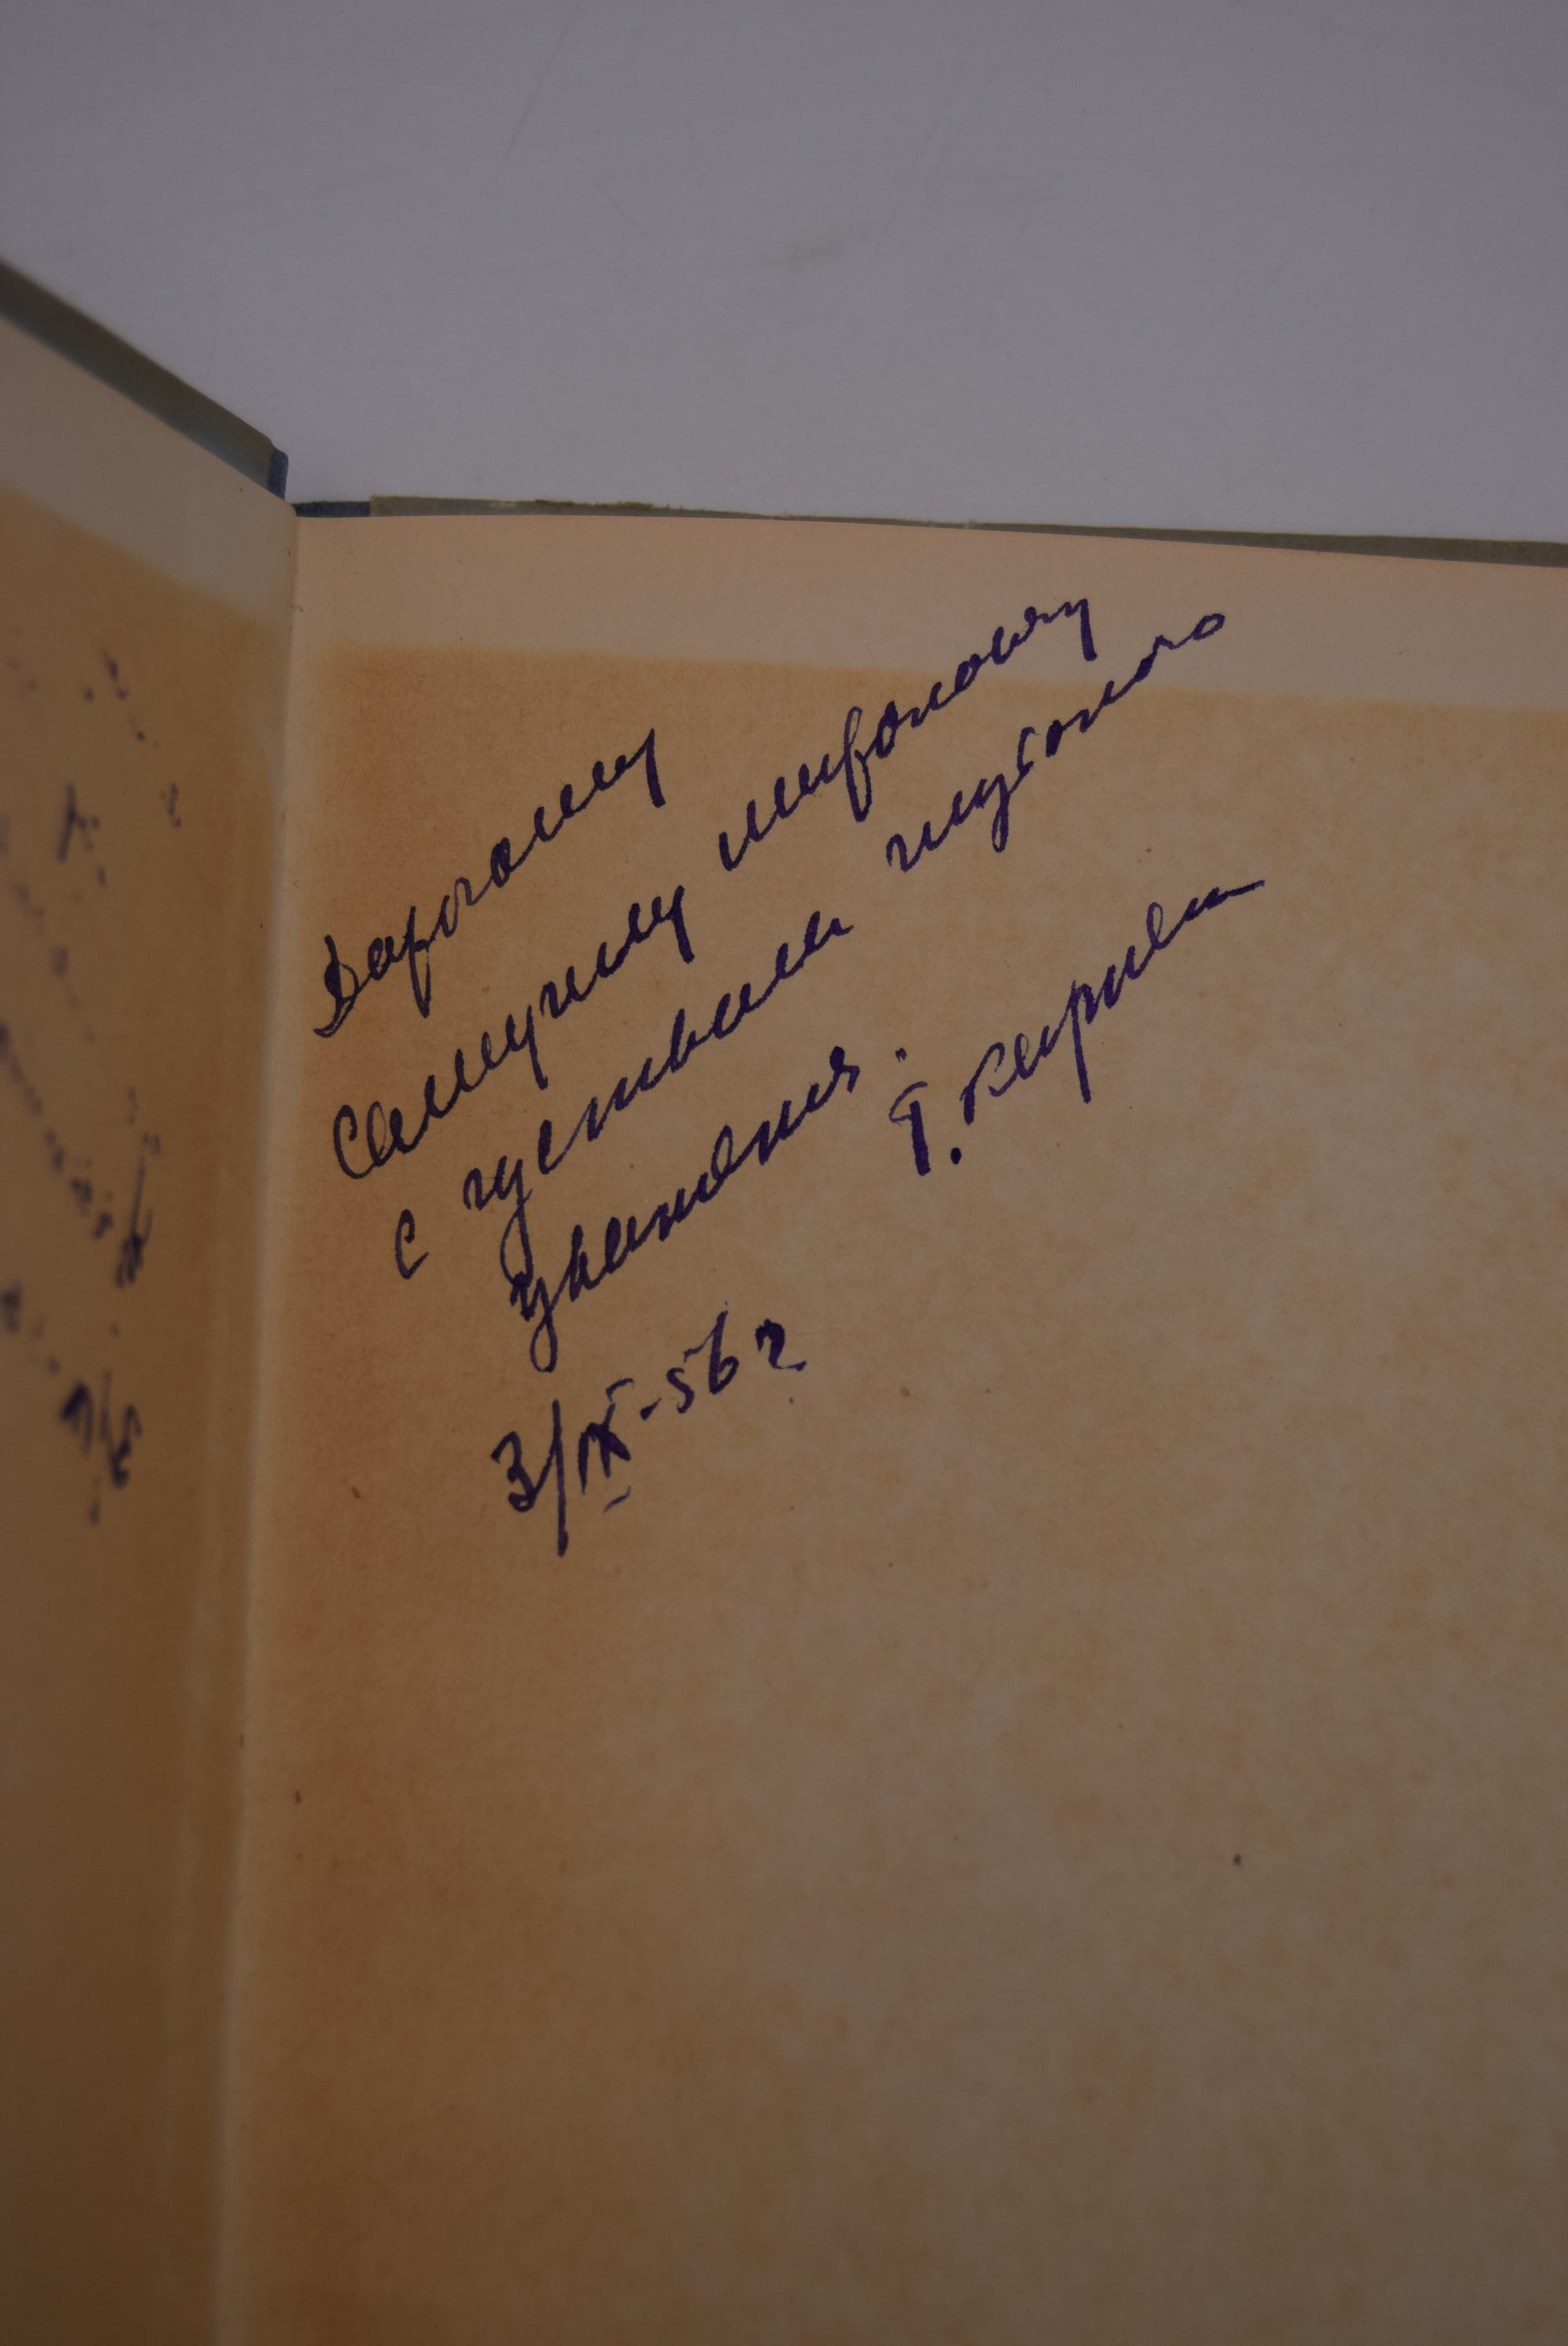 Дорогому
Самуилу Мироновичу
с чувством глубокого
уважения.
3/IX-56 г